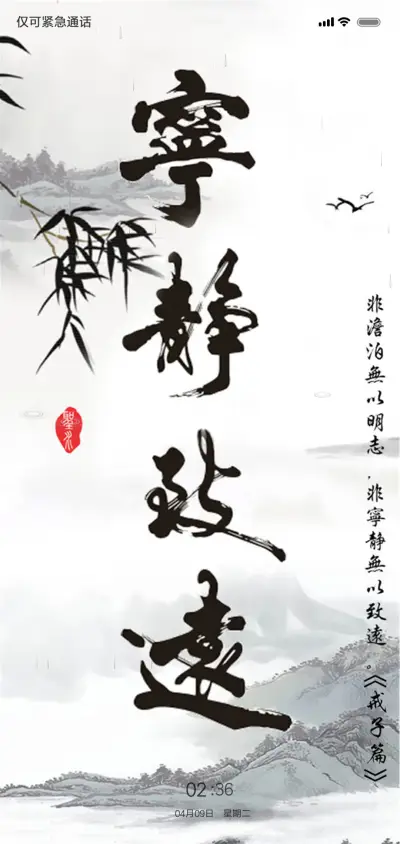 仅可紧急通话
寧靜致遠
非澹泊無以明志，非寧靜無以致遠。《戒子篇》
02:36
04月09日 星期二